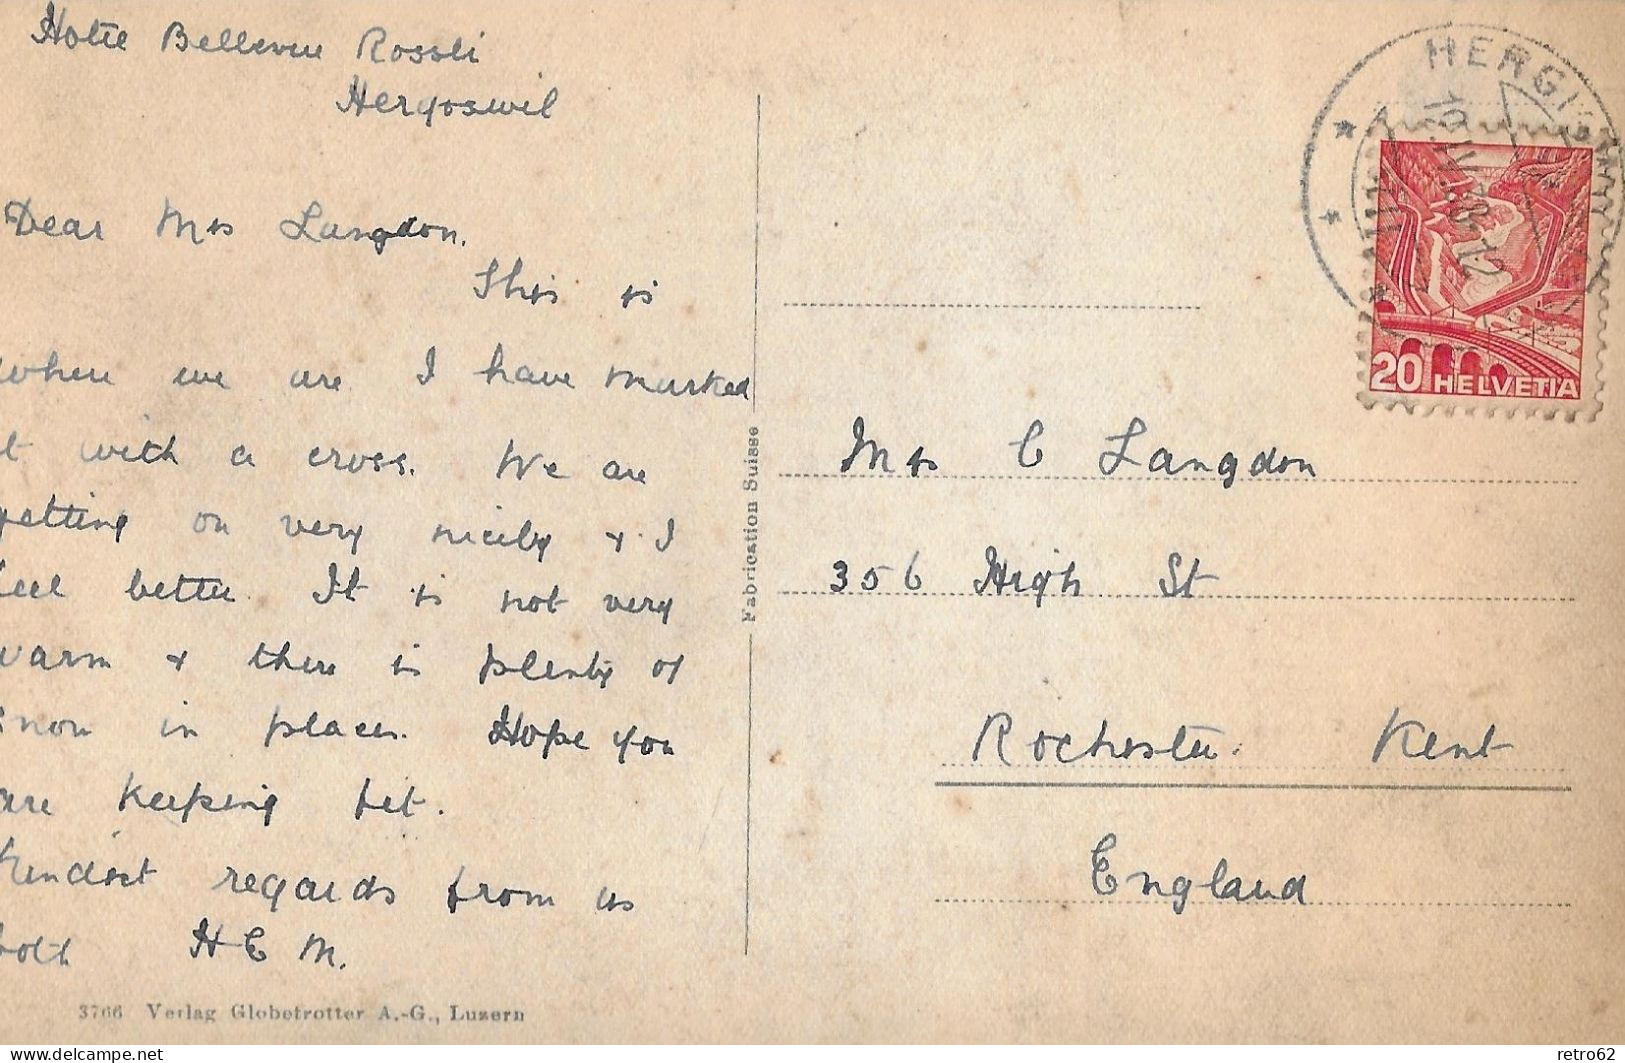 Hotie Bellevue Rossli
Hergoswil
Dear Mrs Langdon.
This is
where we are I have marked
it with a cross. We are
getting on very nicely & I
feel better It is not very
warm & there is plenty of
snow in places. Hope you
are keeping fit.
Kindest regards from us
both H E M.
3766 Verlag Globetrotter A.-G., Luzern
Fabrication Suisse
HERGI
10.IV.38-12
20 HELVETIA
Mrs C Langdon
356 High St
Rochester. Kent
England
delcampe.net
retro62